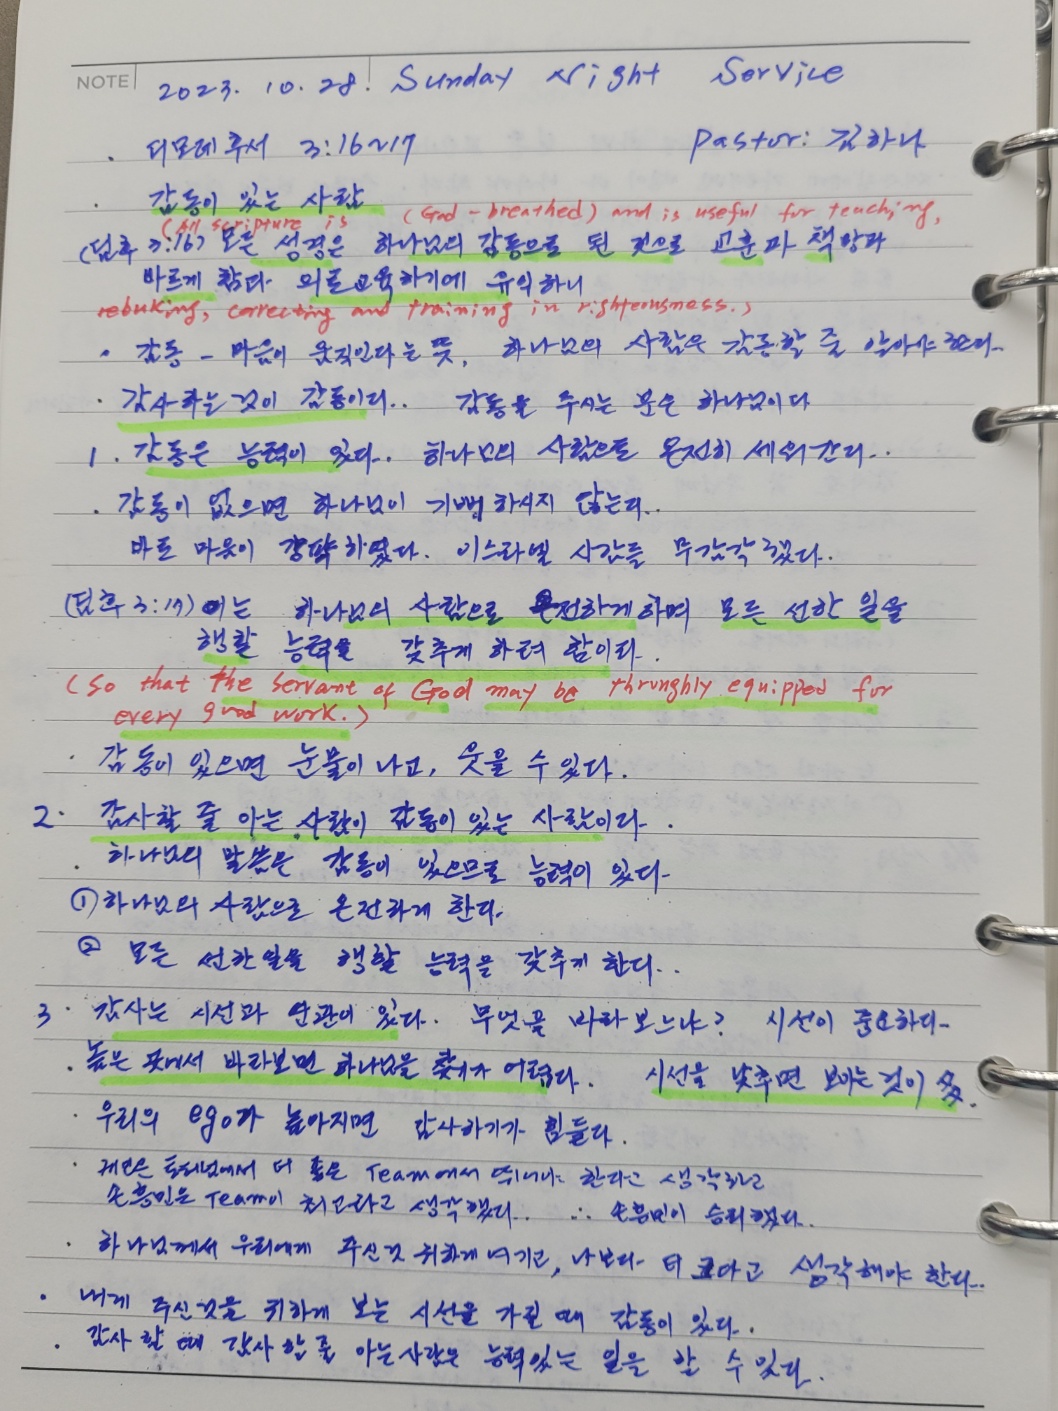 NOTE 2023. 10. 28. Sunday Night Service
· 디모데후서 3:16~17 Pastor: 김하나
· 감동이 있는 사람
(All scripture is (God-breathed) and is useful for teaching,
(딤후 3:16) 모든 성경은 하나님의 감동으로 된 것으로 교훈과 책망과
바르게 함과 의로 교육하기에 유익하니
rebuking, correcting and training in righteousness.)
· 감동 - 마음이 움직인다는 뜻, 하나님의 사람은 감동할 줄 알아야 한다..
· 감사하는 것이 감동이다.. 감동을 주시는 분은 하나님이다
1. 감동은 능력이 있다.. 하나님의 사람으로 온전히 세워간다..
· 감동이 없으면 하나님이 기뻐하시지 않는다..
바로 마음이 강퍅하였다. 이스라엘 사람들 무감각했다..
(딤후 3:17) 이는 하나님의 사람으로 온전하게 하며 모든 선한 일을
행할 능력을 갖추게 하려 함이라.
(so that the servant of God may be thrunghly equipped for
every good work.)
· 감동이 있으면 눈물이 나고, 웃을 수 있다.
2. 감사할 줄 아는 사람이 감동이 있는 사람이다.
· 하나님의 말씀은 감동이 있으므로 능력이 있다.
① 하나님의 사람으로 온전하게 한다.
② 모든 선한 일을 행할 능력을 갖추게 한다..
3. 감사는 시선과 연관이 있다. 무엇을 바라보느냐? 시선이 중요하다.
· 높은 곳에서 바라보면 하나님을 찾기가 어렵다. 시선을 낮추면 보이는 것이 多.
· 우리의 ego가 높아지면 감사하기가 힘들다.
· 케인은 토트넘에서 더 좋은 Team에서 뛰어야 한다고 생각하고
손흥민은 Team이 최고라고 생각했다.. ∴ 손흥민이 승리했다.
· 하나님께서 우리에게 주신것 귀하게 여기고, 나보다 더 크다고 생각해야 한다..
· 내게 주신것을 귀하게 보는 시선을 가질 때 감동이 있다.
· 감사 할 때 감사 할 줄 아는 사람은 능력있는 일을 할 수 있다.